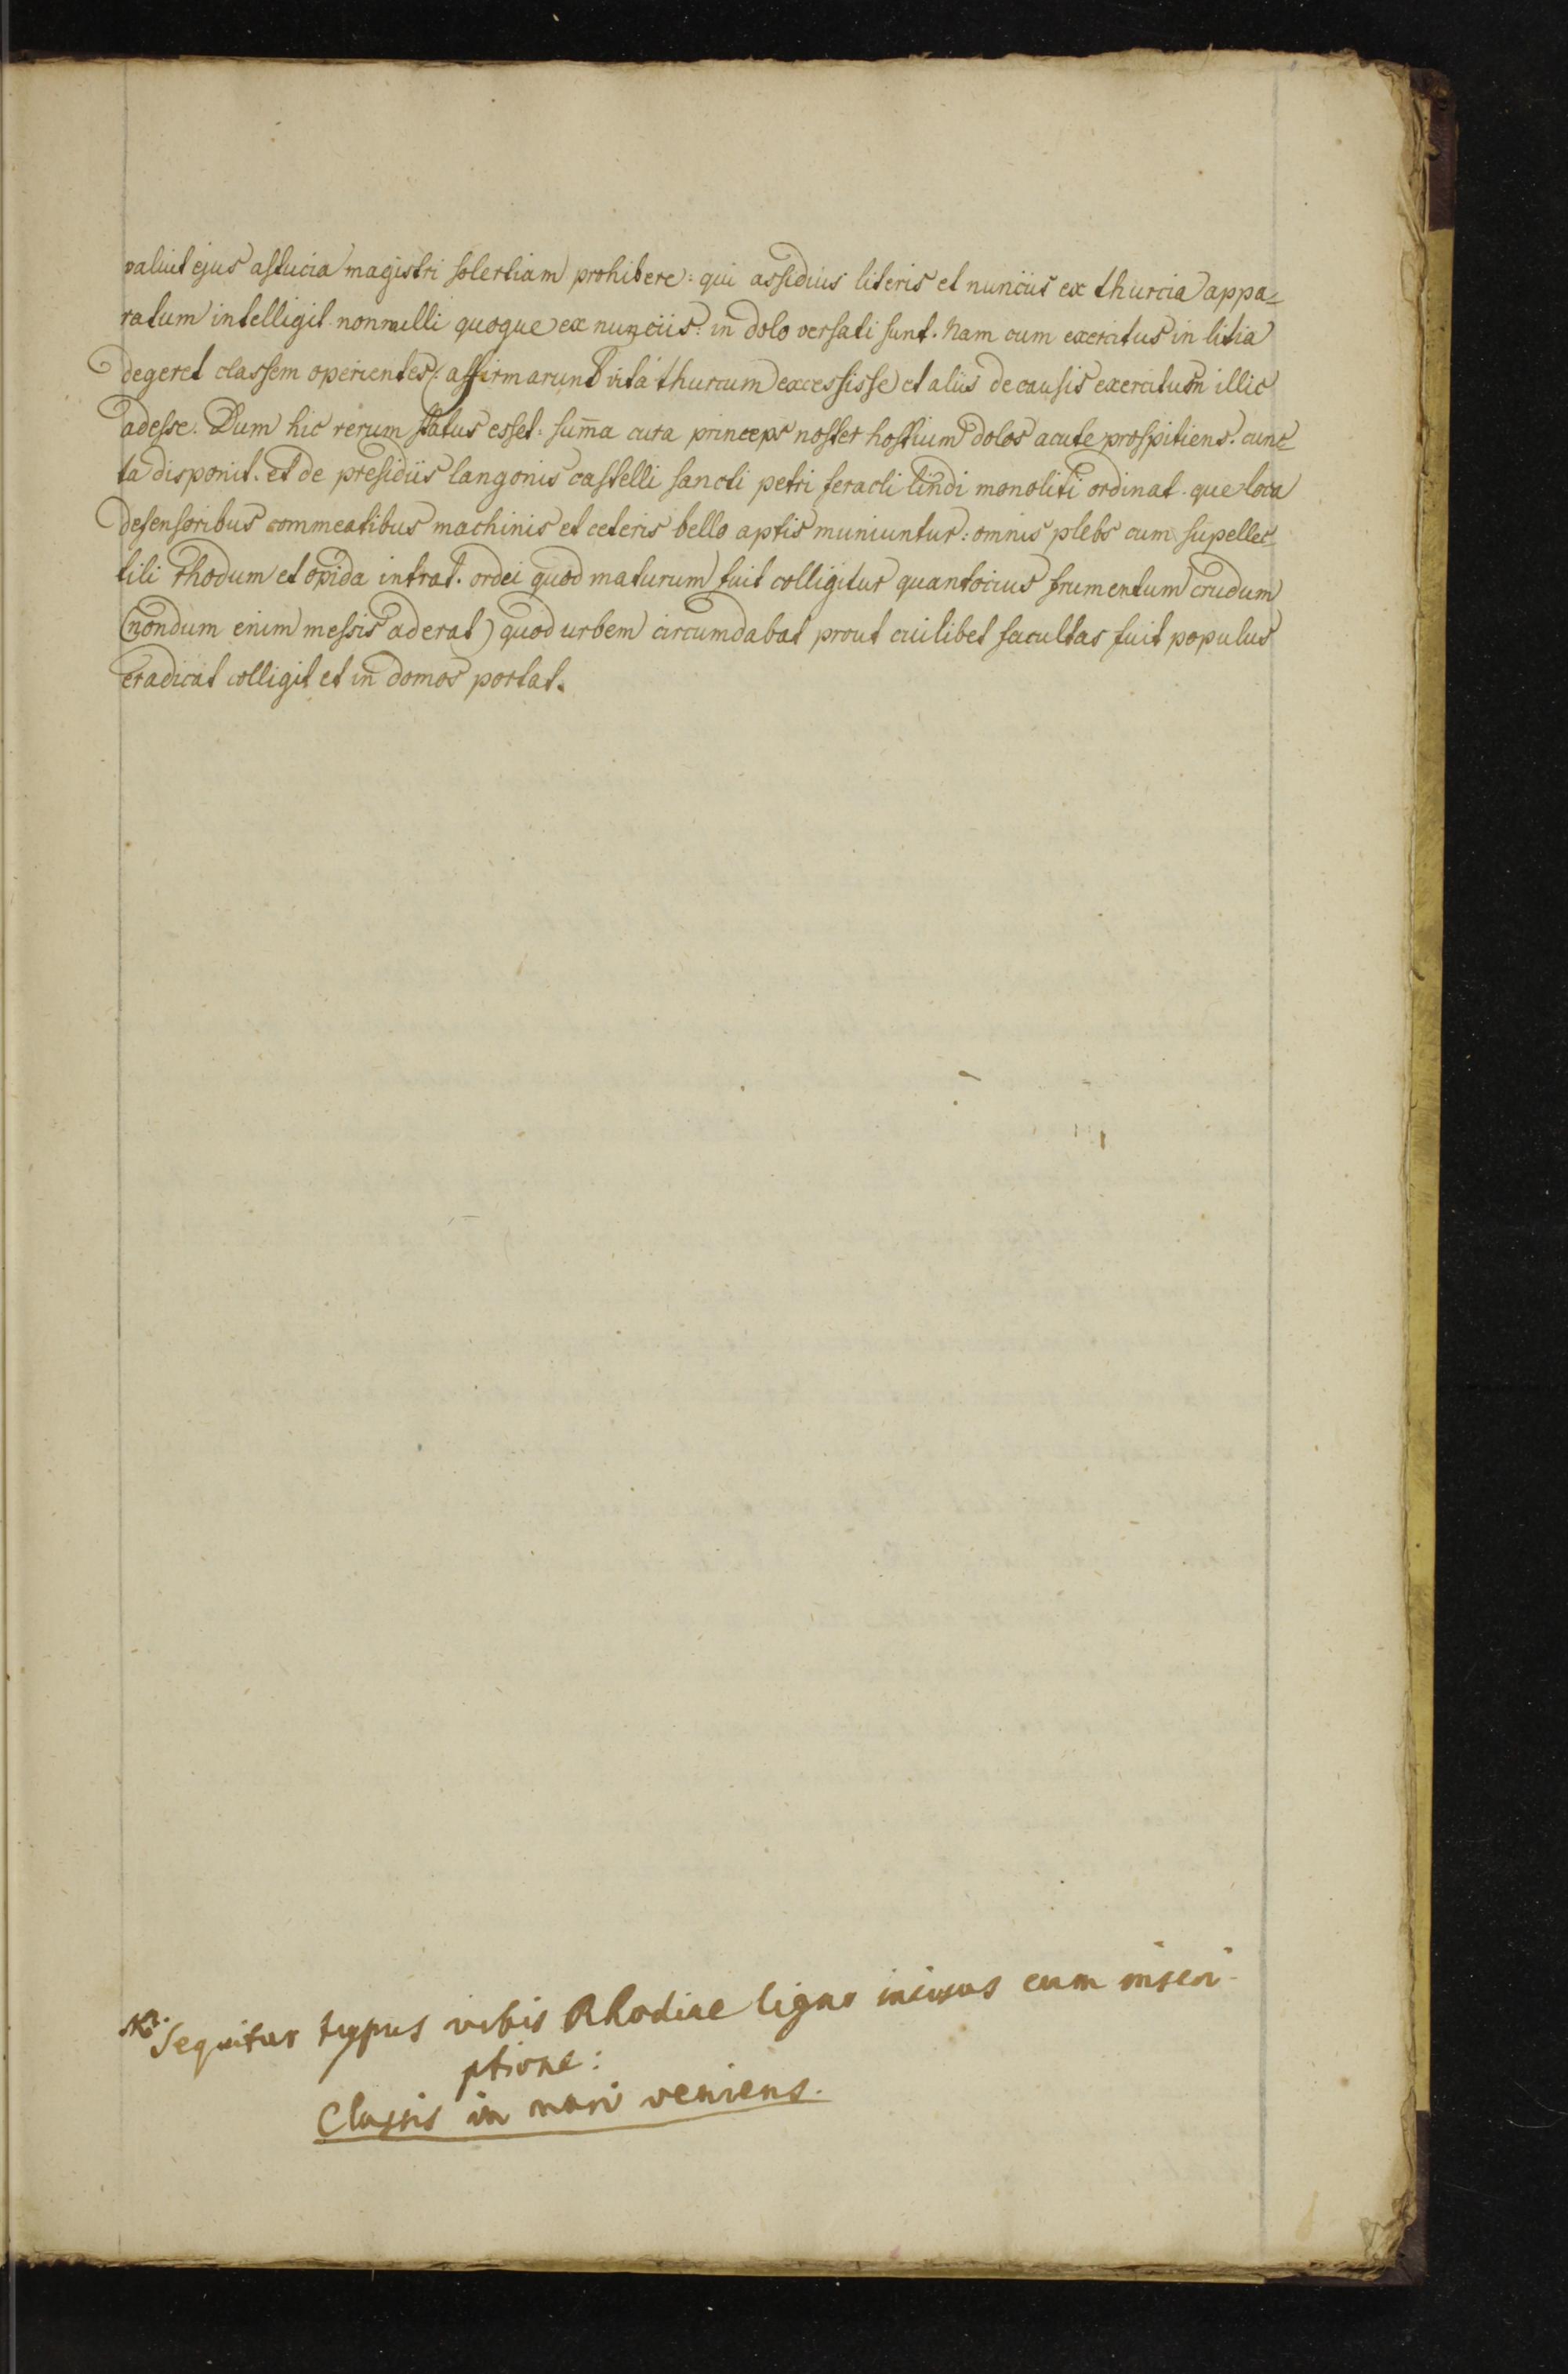 valuit ejus astucia magistri solertiam prohibere: qui assidius literis et nunciis ex thurcia appa-
ratum intelligit. nonnulli quoque ex nunciis: in dolo versati sunt. Nam cum exercitus in litia
degeret classem operientes: affirmarunt vita thurcum excessisse et aliis de causis exercitum illic
adesse. Dum hic rerum status esset: sum̄a cura princeps noster hostium dolos acute prospitiens. cunc-
ta disponit. et de presidiis langonis castelli sancti petri feracli lindi monoliti ordinat. que loca
defensoribus commeatibus machinis et ceteris bello aptis muniuntur: omnis plebs cum supellec-
tili rhodum et opida intrat. ordei quod maturum fuit colligitur quantocius frumentum crudum
(nondum enim messis aderat) quod urbem circumdabat prout cuilibet facultas fuit populus
eradicat colligit et in domos portat.
Sequitur typus urbis Rhodiae ligno incisus cum inscri-
ptione:
Classis in mari veniens.